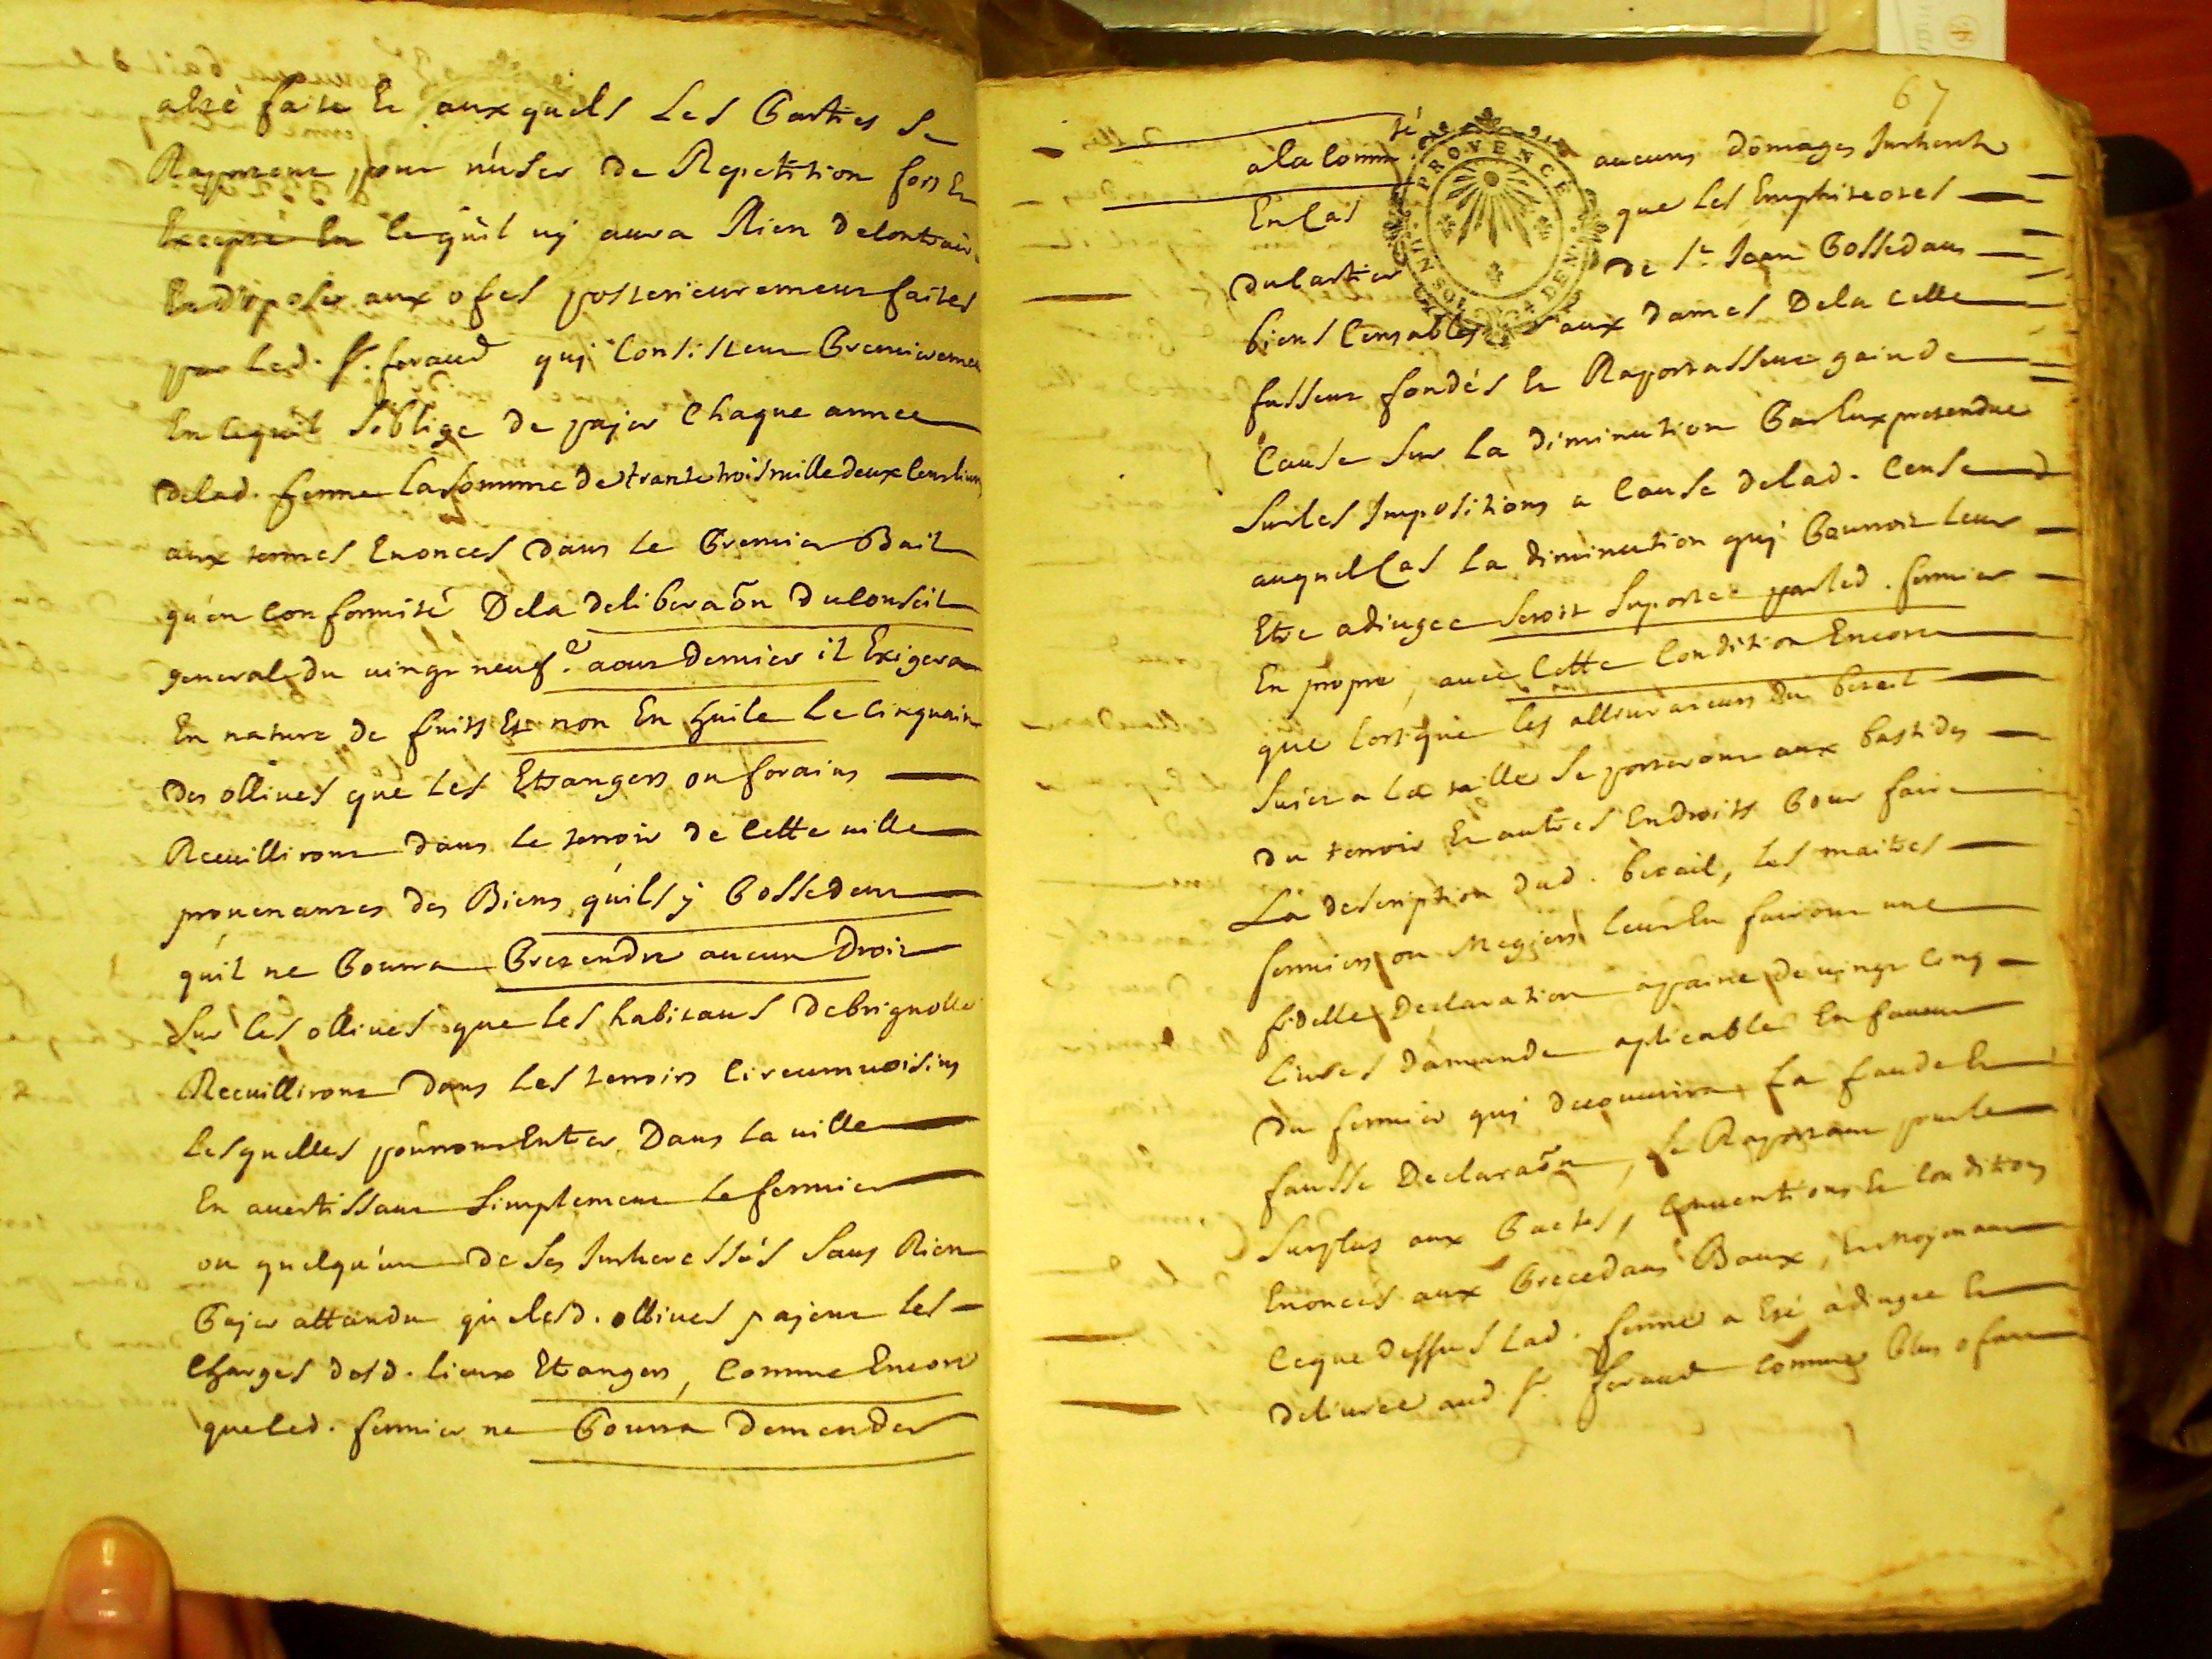 a Eté faite Et auxquels Les Parties Se
Raportent, pour n'user de Repetition fors Et
Excepté En Ce qu'il ny aura Rien de Contraire
Et d'oposés aux ofres posterieurement faites
par Led. Sr. feraud quj Consistent Premierement
En Ce qu'il S'oblige de pajer Chaque année
delad. ferme La Somme de trante trois mille deux Cens livres
aux termes Enonces dans Le Premier Bail
qu'en Conformité Dela deliberaõn du Conseil
general du vingt neuf.e aout Dernier il Exigera
En nature de fruits Et non En huile Le Cinquain
Des ollives que Les Etrangers ou forains
Recuilliront dans Le terroir de Cette ville
provenantes des Biens qu'ils ÿ Possedent
qu'il ne Pourra Pretendre aucun Droit
Sur Les ollives que Les habitans de brignolle
Recuilliront dans Les terroirs Circumvoisins
Lesquelles pourront Entrer Dans La ville
En avertissant Simplement Le fermier
ou quelqu'un de Ses Intheressés Sans Rien
Pajer attandu que lesd. ollives pajent Les
Charges desd. Lieux Etrangers, Comme Encore
que led. fermier ne Pourra Demender
67
PROVENCE
UN SOL
4 DEN
a la Commté aucuns domages Intherets
En Cas que Les Emphiteotes
du Cartier de St Jean Possedans
biens Censables aux dames Dela Celle
fussent fondés Et Raportassent gain de
Cause Sur La diminution Par Eux pretendue
Sur les Impositions a Cause delad. Cense
auquel Cas La diminution quj Pourroit Leur
Etre adiugee Seroit Suportée par led. fermier
En propre, avec Cette Condition Encore
que Lors que Les allivrateurs du betail
Sujet a La taille Se porteront aux bastides
du terroir Et autres Endroits Pour faire
La description dud. betail, Les maitres
fermiers ou Megiers Leur En fairont une
fidelle Declaration a paine de vingt Cinq
Livres damande aplicable En faveur
du fermier quj decouvrira La faude Et
fausse Declaraõn, Se Raportant pour le
Surplus aux Pactes, Conventions Et Conditions
Enoncés aux Precedans Baux, Et Moyenant
Ce que Dessus Lad. ferme a Eté adiugee Et
delivrée aud. Sr. feraud Comme Plus ofrant